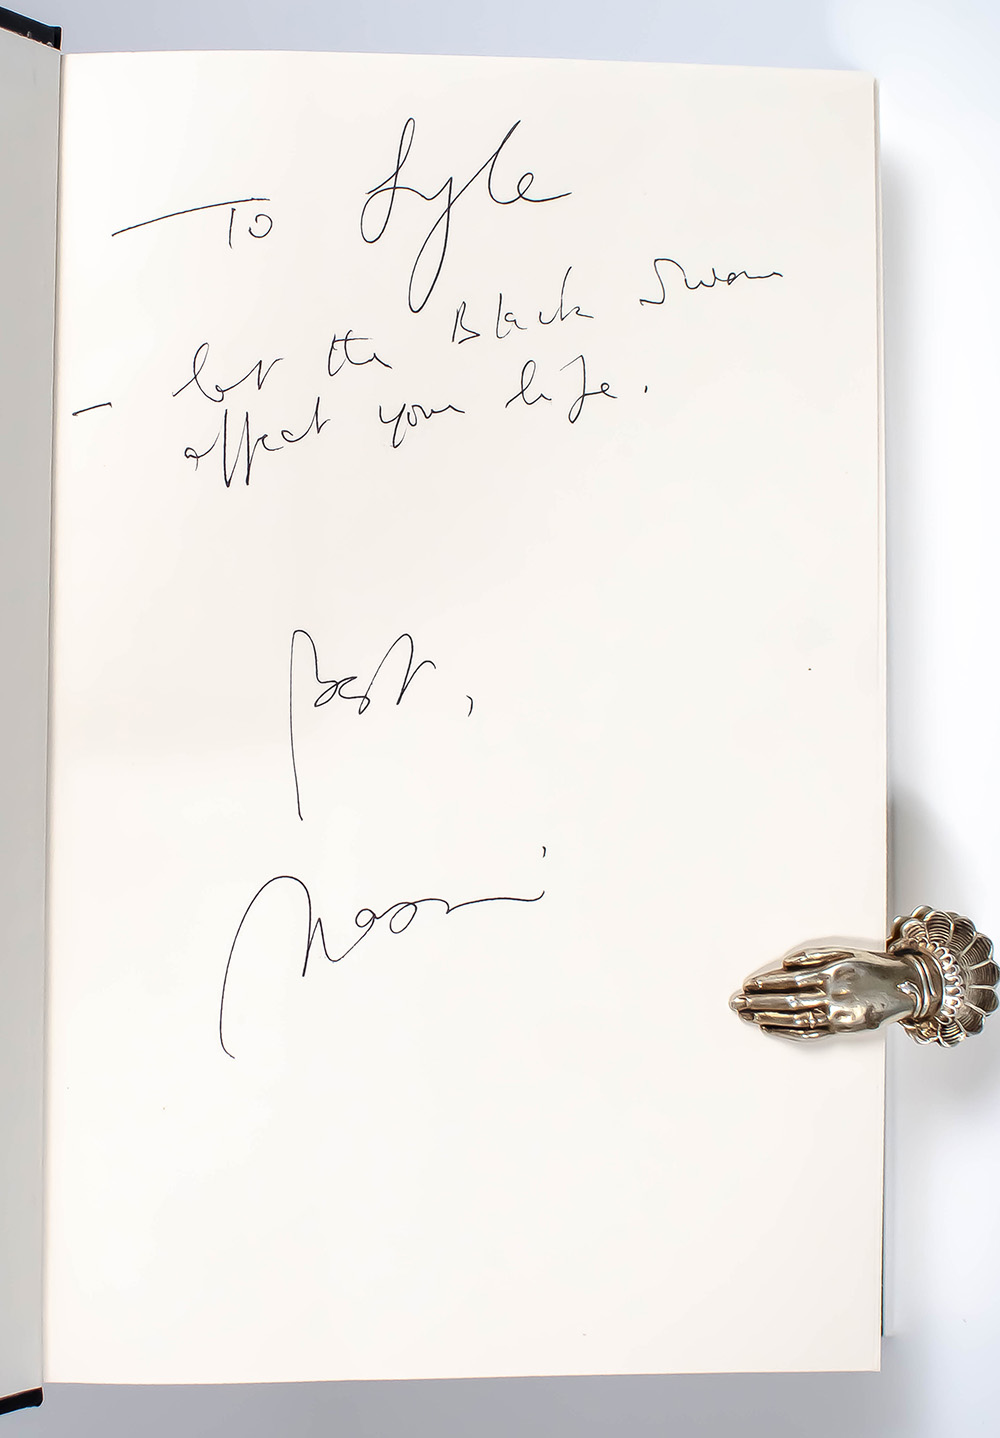 To Lyle
- let the Black Swan
affect your life.
Best,
Nassim